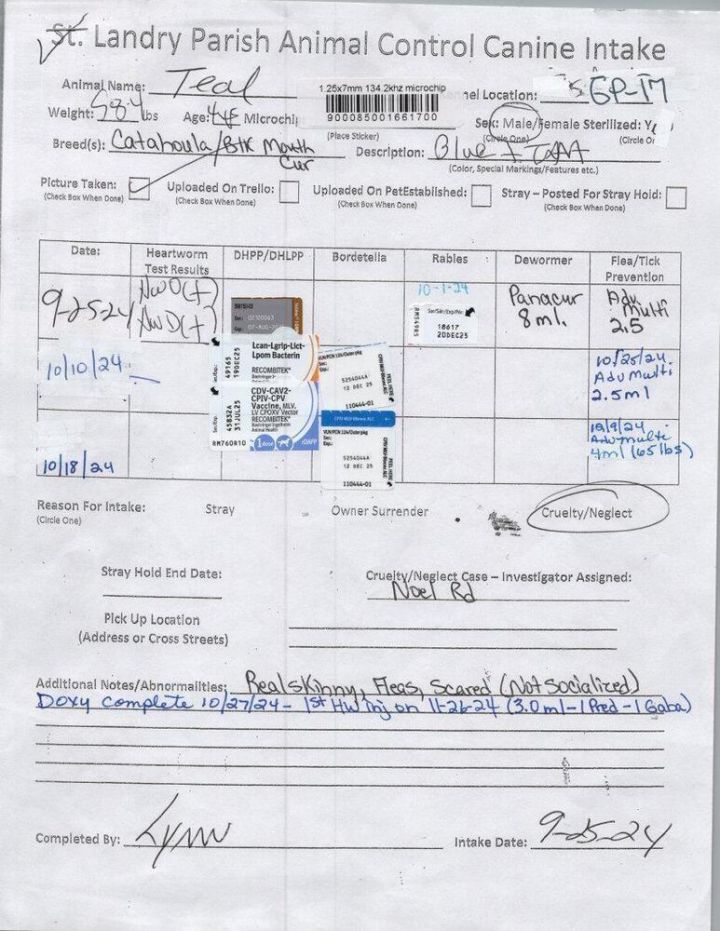 St. Landry Parish Animal Control Canine Intake
Animal Name: Teal
1.25x7mm 134.2khz microchip
900085001661700
(Place Sticker)
nel Location: GP-17
Weight: 58.4 lbs Age: 4 yr Microchi
Sex: Male/Female Sterilized: Y
(Circle One) (Circle Or
Breed(s): Catahoula/Blk Mouth Cur Description: Blue + Tan
(Color, Special Markings/Features etc.)
Picture Taken: Uploaded On Trello: Uploaded On PetEstablished: Stray – Posted For Stray Hold:
(Check Box When Done) (Check Box When Done) (Check Box When Done) (Check Box When Done)
Date: Heartworm Test Results DHPP/DHLPP Bordetella Rabies Dewormer Flea/Tick Prevention
9-25-24 HWD(+) HWD(+) 10-1-24 Panacur 8 ml. Adv. Multi 2.5
18617
20DEC25
10/10/24
Lcan-Lgrip-Lict-
Lpom Bacterin
RECOMBITEK®
49165
19DEC25
CDV-CAV2-
CPIV-CPV
Vaccine, MLV,
LV CPOXV Vector
RECOMBITEK®
Boehringer Ingelheim
Animal Health
45832A
31JUL25
RM760R10
1 dose
5254044A
12 DEC 25
110444-01
PEEL HERE
10/25/24
Adv Multi
2.5 ml
10/18/24
5254044A
12 DEC 25
110444-01
12/9/24
Adv multi
4ml (65 lbs)
Reason For Intake: Stray Owner Surrender Cruelty/Neglect
(Circle One)
Stray Hold End Date: Cruelty/Neglect Case – Investigator Assigned:
Noel Rd
Pick Up Location
(Address or Cross Streets)
Additional Notes/Abnormailties: Real skinny, Fleas, Scared (Not Socialized)
Doxy complete 10/27/24 - 1st HW inj on 11-26-24 (3.0 ml - 1 Pred - 1 Gaba)
Completed By: Lynn Intake Date: 9-25-24